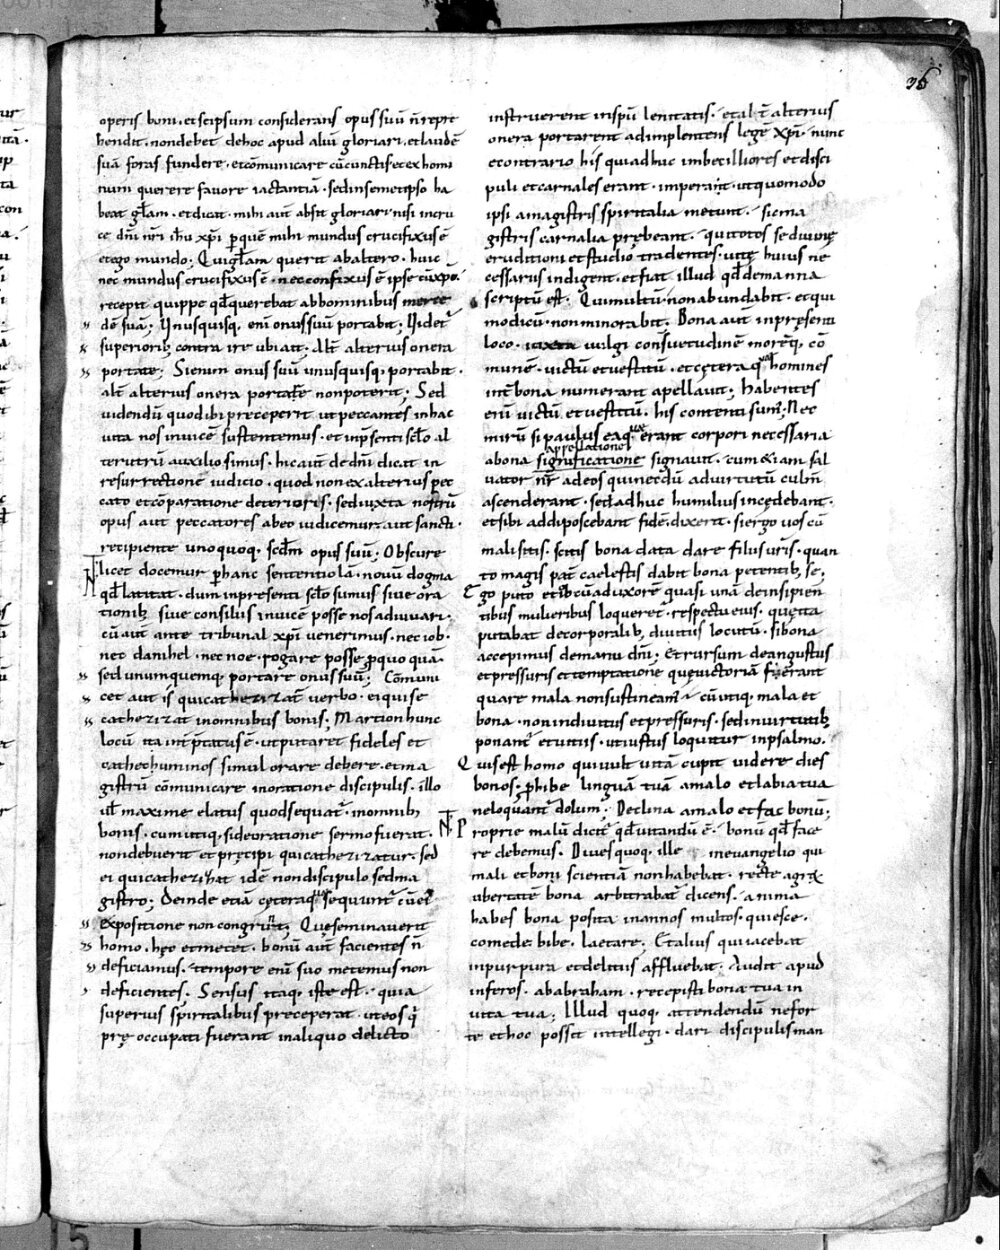 36
operis boni. et seipsum considerans opus suū n̄ repre
hendit. non debet de hoc apud aliū gloriari. et laudē
suā foras fundere. et cōmunicare cū cunctis et ex homi
num querere favore iactantiā. sed in semetipso ha
beat gl̄am. et dicat. mihi aut̄ absit gloriari nisi in cru
ce dn̄i nr̄i ih̄u xp̄i p̱ quē mihi mundus crucifixus ē
et ego mundo; Qui gl̄am querit ab altero. huic
nec mundus crucifixus ē. nec confixus ē ipse cū xp̄o.
recepit quippe qd̄ querebat ab hominibus merce
dē suā; Unusquisq. eni onus suū portabit; Videt̄
superiorib; contra ire ubi ait; Alt̄ alterius onera
portate; Si enim onus suū unusquisq; portabit.
alt̄ alterius onera portare non poterit; Sed
videndū quod ibi preceperit ut peccantes in hac
vita nos invicē sustentemus. et in p̄senti sc̄lo al
terutrū auxilio simus. hic aut̄ de dn̄i dicat in
resurrectione iudicio. quod non ex alterius pec
cato et cōparatione deterioris. sed iuxta nostrū
opus aut peccatores ab eo iudicemur. aut sancti.
recipiente unoquoq. scd̄m opus suū; Obscure
licet docemur p̱ hanc sententiolā. novū dogma
qd̄ latitat. dum in presenti sc̄lo sumus sive ora
tionib; sive consiliis invicē posse nos adiuvari.
cū aut̄ ante tribunal xp̄i venerimus. nec iob.
nec danihel. nec noe. rogare posse p̱ quo quā.
sed unumquemq; portare onus suū; Cōmuni
cet aut̄ is qui catherizat̄ verbo. ei qui se
catherizat in omnibus bonis; Martion hunc
locū ita int̄p̄tatus ē. ut putaret fideles et
cathechuminos simul orare debere. et ma
gistrū cōmunicare in oratione discipulis. illo
ul̄ maxime elatus quod sequat̄. in omnib;
bonis. cum utiq; si de oratione sermo fuerat.
non debuerit et p̨recipi qui catherizatur. sed
ei qui catherizat idē non discipulo sed ma
gistro; Deinde etiā cęteraq sequunt̄ cū ei
expositione non congruūt; Quę seminaverit
homo. hęc et metet. bonū aut̄ facientes n̄
deficiamus. tempore enī suo metemus non
deficientes. Sensus itaq. iste est. quia
superius spiritalibus preceperat. ut eos q̄
prę occupati fuerant in aliquo delicto
instruerent in sp̄u lenitatis. et alt̄ alterius
onera portarent adimplentes legē xp̄i. nunc
e contrario his qui adhuc imbecilliores et disci
puli et carnales erant. imperat. ut quomodo
ipsi a magistris spiritalia metunt. sic ma
gistris carnalia prębeant. qui totos se divinę
eruditioni et studio tradentes. vitę huius ne
cessariis indigent. et fiat illud qd̄ de manna
scriptū est. Qui multū. non abundabit. et qui
modicū. non minorabit. Bona aut̄ in pręsenti
loco. iuxta vulgi consuetudinē morēq, cō
munē. victū et vestitū. et cęteraq quae homines
int̄ bona numerant apellavit; Habentes
enī victū et vestitū. his contenti sum'; Nec
mirū si paulus ea quae erant corpori necessaria
appellatione
a bona significatione signavit. cum & iam sal
vator nr̄ ad eos qui necdū ad virtutū culm̄
ascenderant. sed adhuc humilius incędebant.
et sibi addi poscebant fidē. dixerit. si ergo vos cū
mali sitis. scitis bona data dare filiis vr̄is. quan
to magis pat̄ caelestis dabit bona petentib; se;
Ego puto et ibi cū ad uxore quasi unā de insipien
tibus mulieribus loqueret̄. respectu eius. quę ita
putabat de corporalib, divitiis locutū. si bona
accepimus de manu dn̄i. Et rursum de angustiis
et pressuris et temptatione quę victoriā fecerant
quare mala non sustineam'. cū utiq, mala et
bona. non in divitiis et pressuris. sed in virtutib;
ponant̄ et vitiis. ut iustus loquitur in psalmo.
Quis est homo qui vult vitā cupit videre dies
bonos; p̱hibe linguā tuā a malo et labia tua
ne loquant̄ dolum; Declina a malo et fac bonū;
Proprie malū dicit̄ qd̄ vitandū ē. bonū qd̄ face
re debemus. Dives quoq. ille in evangelio qui
mali et boni scientiā non habebat. recte agri
ubertatē bona arbitrabat̄ dicens. anima
habes bona posita in annos multos. quiesce.
comede. bibe. laetare. Et alius qui iacebat
in purpura et deliciis affluebat. Audit apud
inferos. ab abraham. recepisti bona tua in
vita tua; Illud quoq. attendendū ne for
te et hoc possit intellegi. dari discipulis man